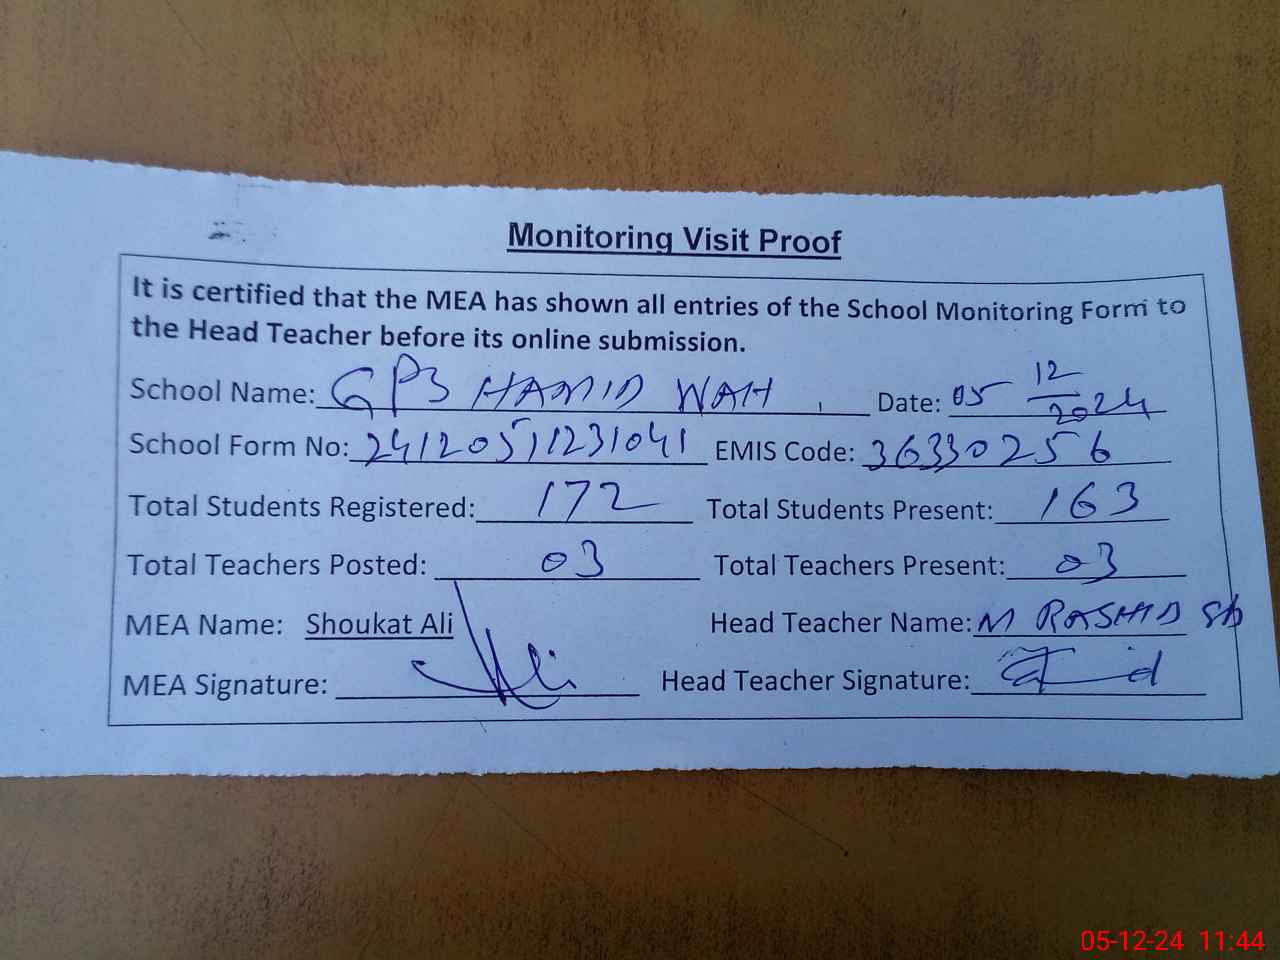 Monitoring Visit Proof
It is certified that the MEA has shown all entries of the School Monitoring Form to
the Head Teacher before its online submission.
School Name: GPS HAMID WAH Date: 05 12 2024
School Form No: 24120511231041 EMIS Code: 36330256
Total Students Registered: 172 Total Students Present: 163
Total Teachers Posted: 03 Total Teachers Present: 03
MEA Name: Shoukat Ali Head Teacher Name: M RASHID Sb
MEA Signature: Ali Head Teacher Signature:
05-12-24 11:44